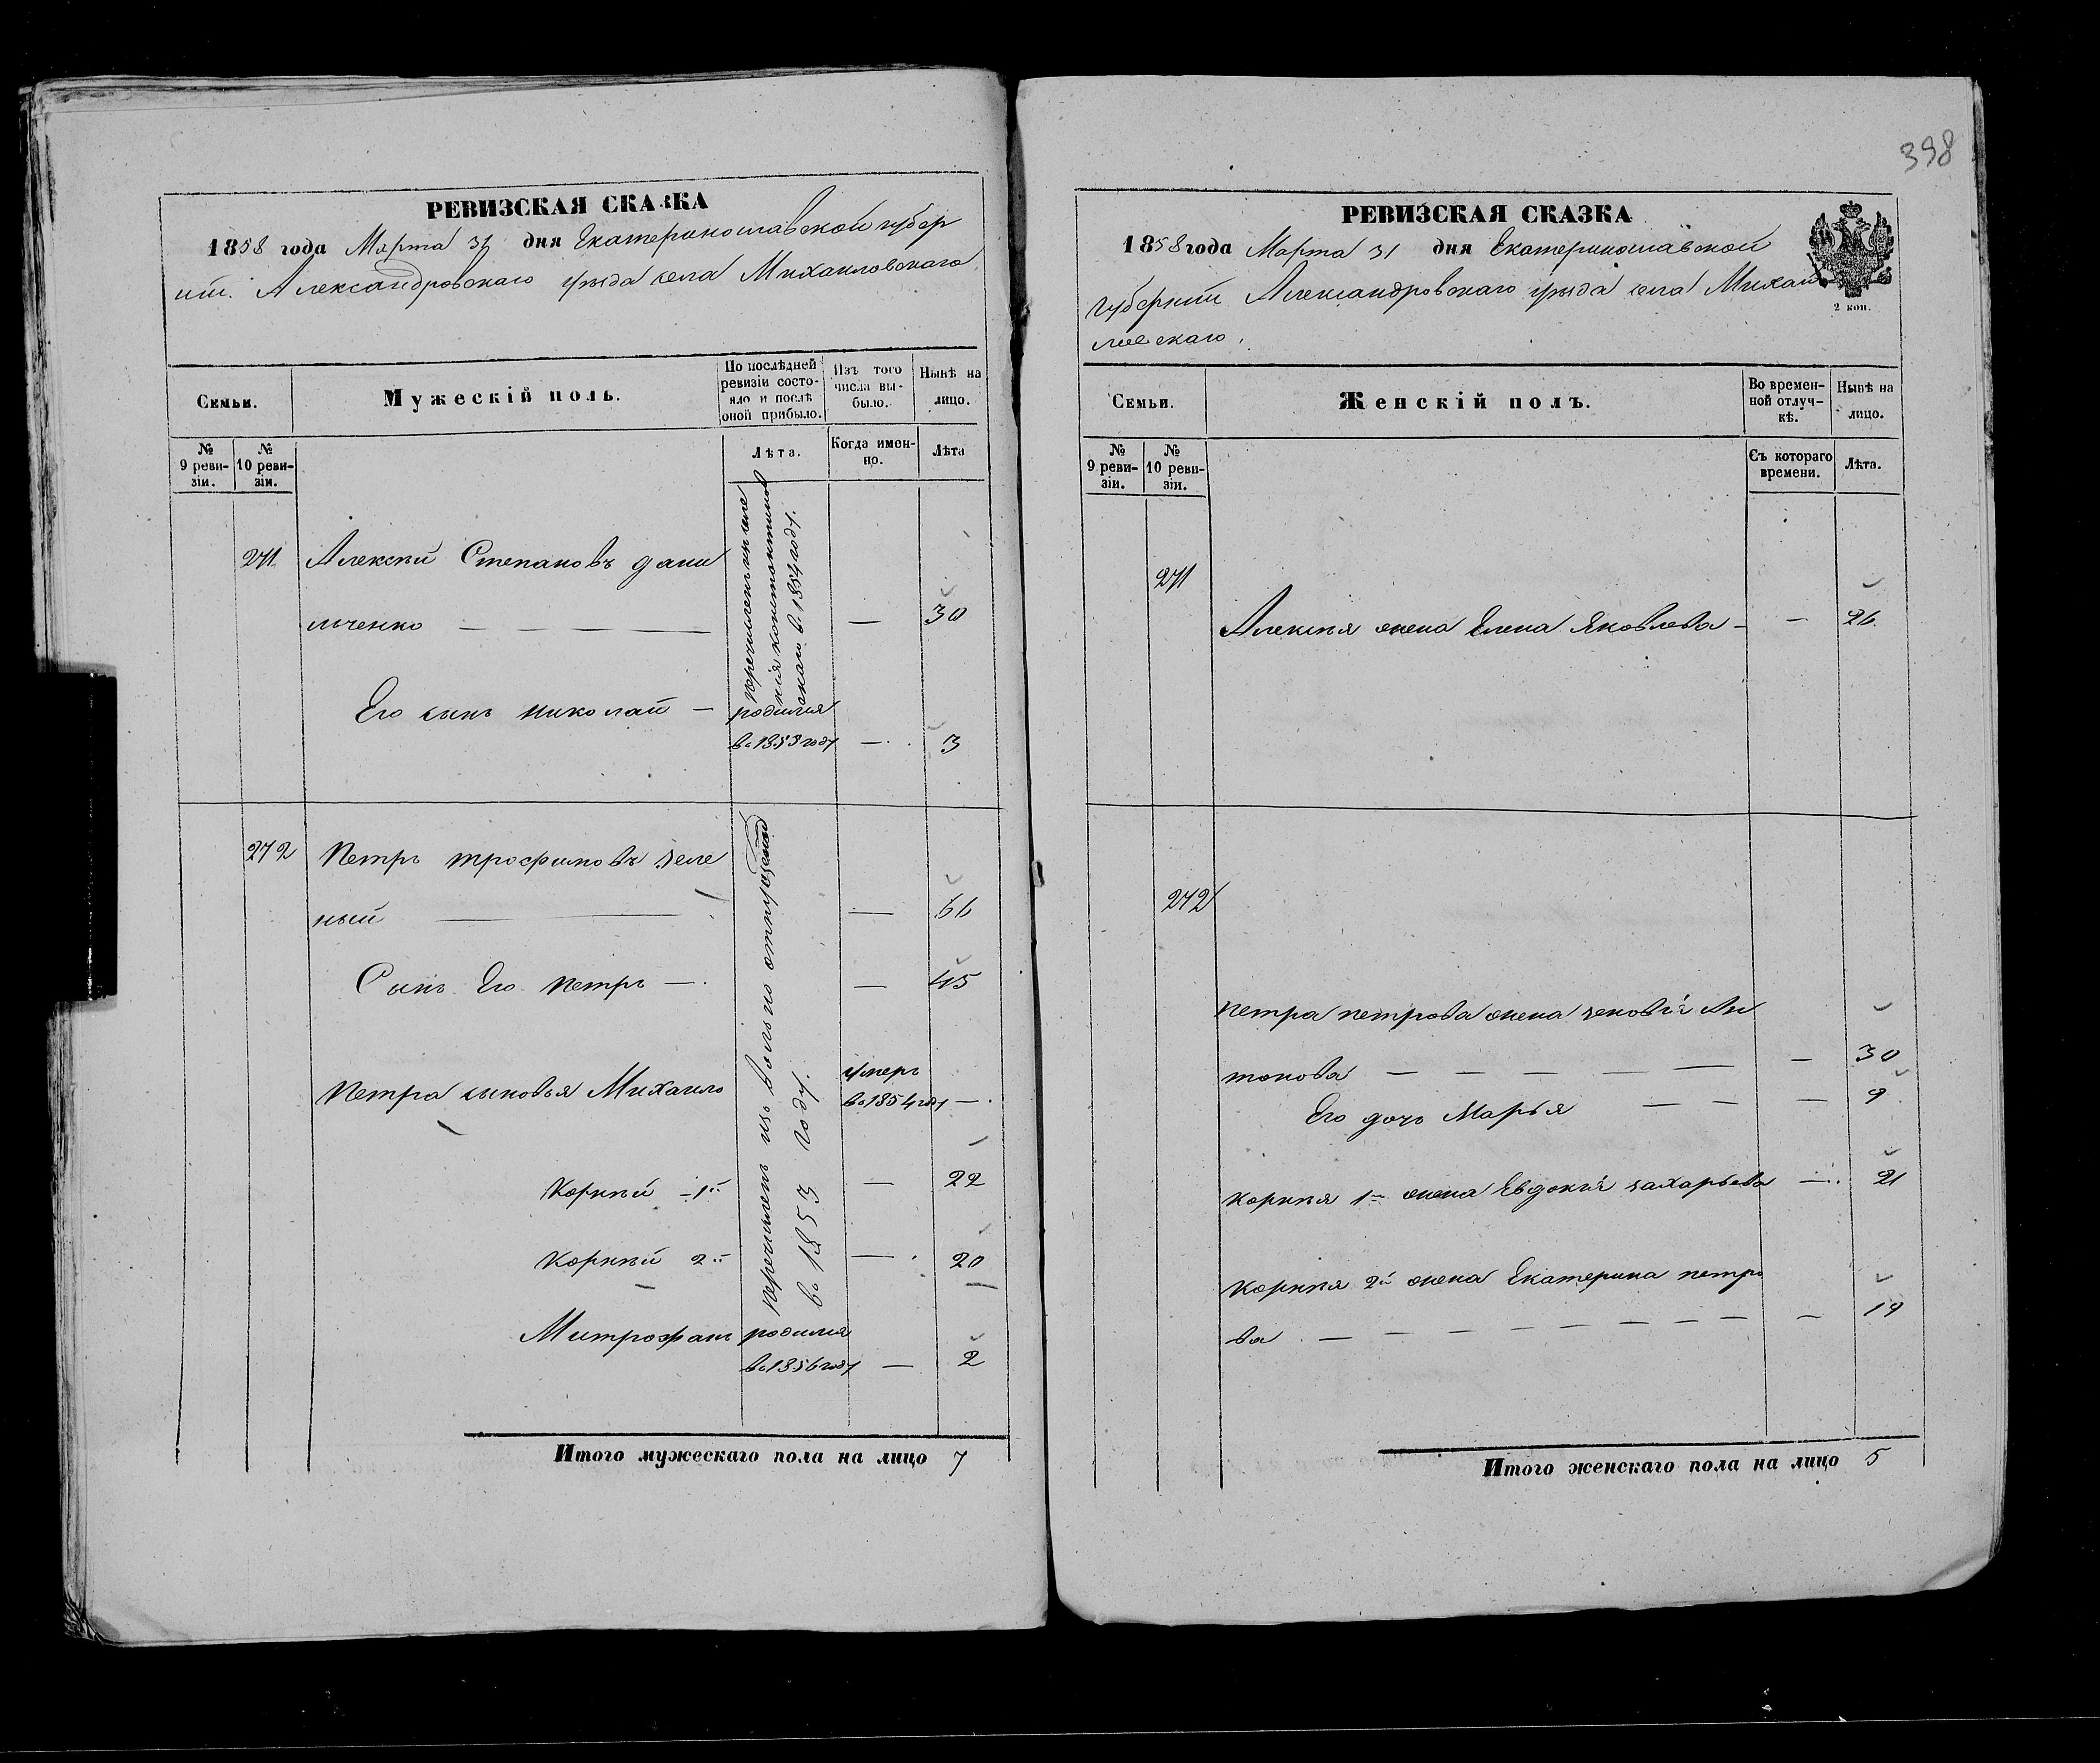 РЕВИЗСКАЯ СКАЗКА
1858 года Марта 31 дня Екатеринославской губер
ніи Александровскаго уѣзда села Михаиловскаго
Семьи.
Мужескій полъ.
По послѣдней ревизіи состояло и послѣ оной прибыло.
Изъ того числа выбыло.
Нынѣ на лицо.
№ 9 ревизіи.
№ 10 ревизіи.
Лѣта.
Когда именно.
Лѣта
271. Алексѣй Степановъ дани
льченко — — 30
перечисленъ изъ селе
нія константинов
скаго в. 1854 году.
Его сынъ николай — родился
въ 1853 году — 3
272 Петръ трофимовъ зеле
ный — — 66
перечисленъ изъ вольно отпущенной
въ 1853 году.
Сынъ Его петръ — — 45
Петра сыновья Михаило умеръ
въ 1854 году —
Корнѣй 1й — 22
Корнѣй 2й — 20
Митрофанъ родился
въ 1856 году — 2
Итого мужескаго пола на лицо 7
398
РЕВИЗСКАЯ СКАЗКА
1858 года Марта 31 дня Екатеринославской
губерніи Александровскаго уѣзда села Михаи
ловскаго.
2 коп.
Семьи.
Женскій полъ.
Во временной отлучкѣ.
Нынѣ на лицо.
№ 9 ревизіи.
№ 10 ревизіи.
Съ котораго времени.
Лѣта.
271
Алексѣя жена Елена Яковлева — — 26.
272
Петра петрова жена зеновія Ан
тонова — — — — — — 30
Его дочь Марья — — — 9
Корнѣя 1го жена Евдокія захарьева — 21
Корнѣя 2й жена Екатерина петро
ва — — — — — — — — — 19
Итого женскаго пола на лицо 5